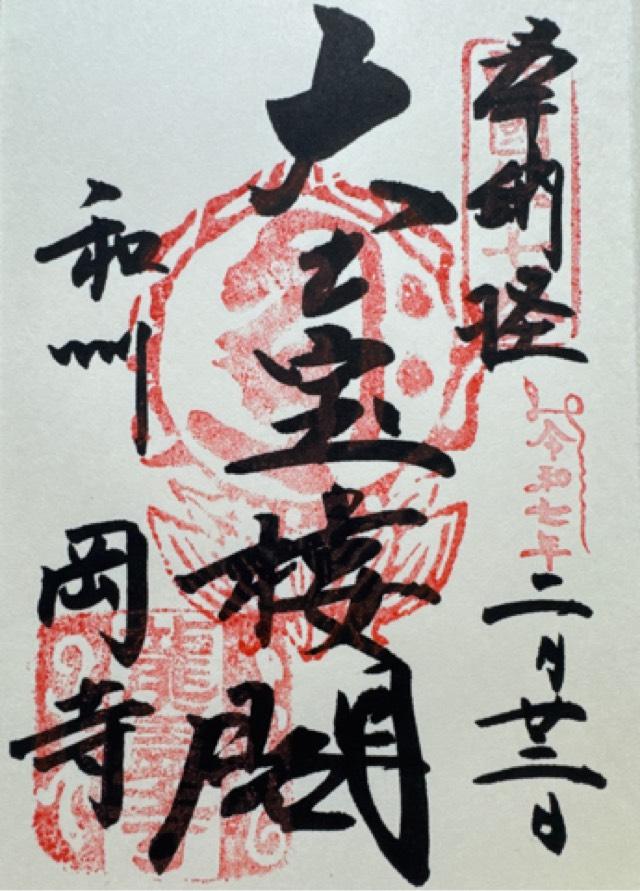 奉納経
令和七年
二月廿二日
大宝楼閣
和州
岡寺
龍蓋寺